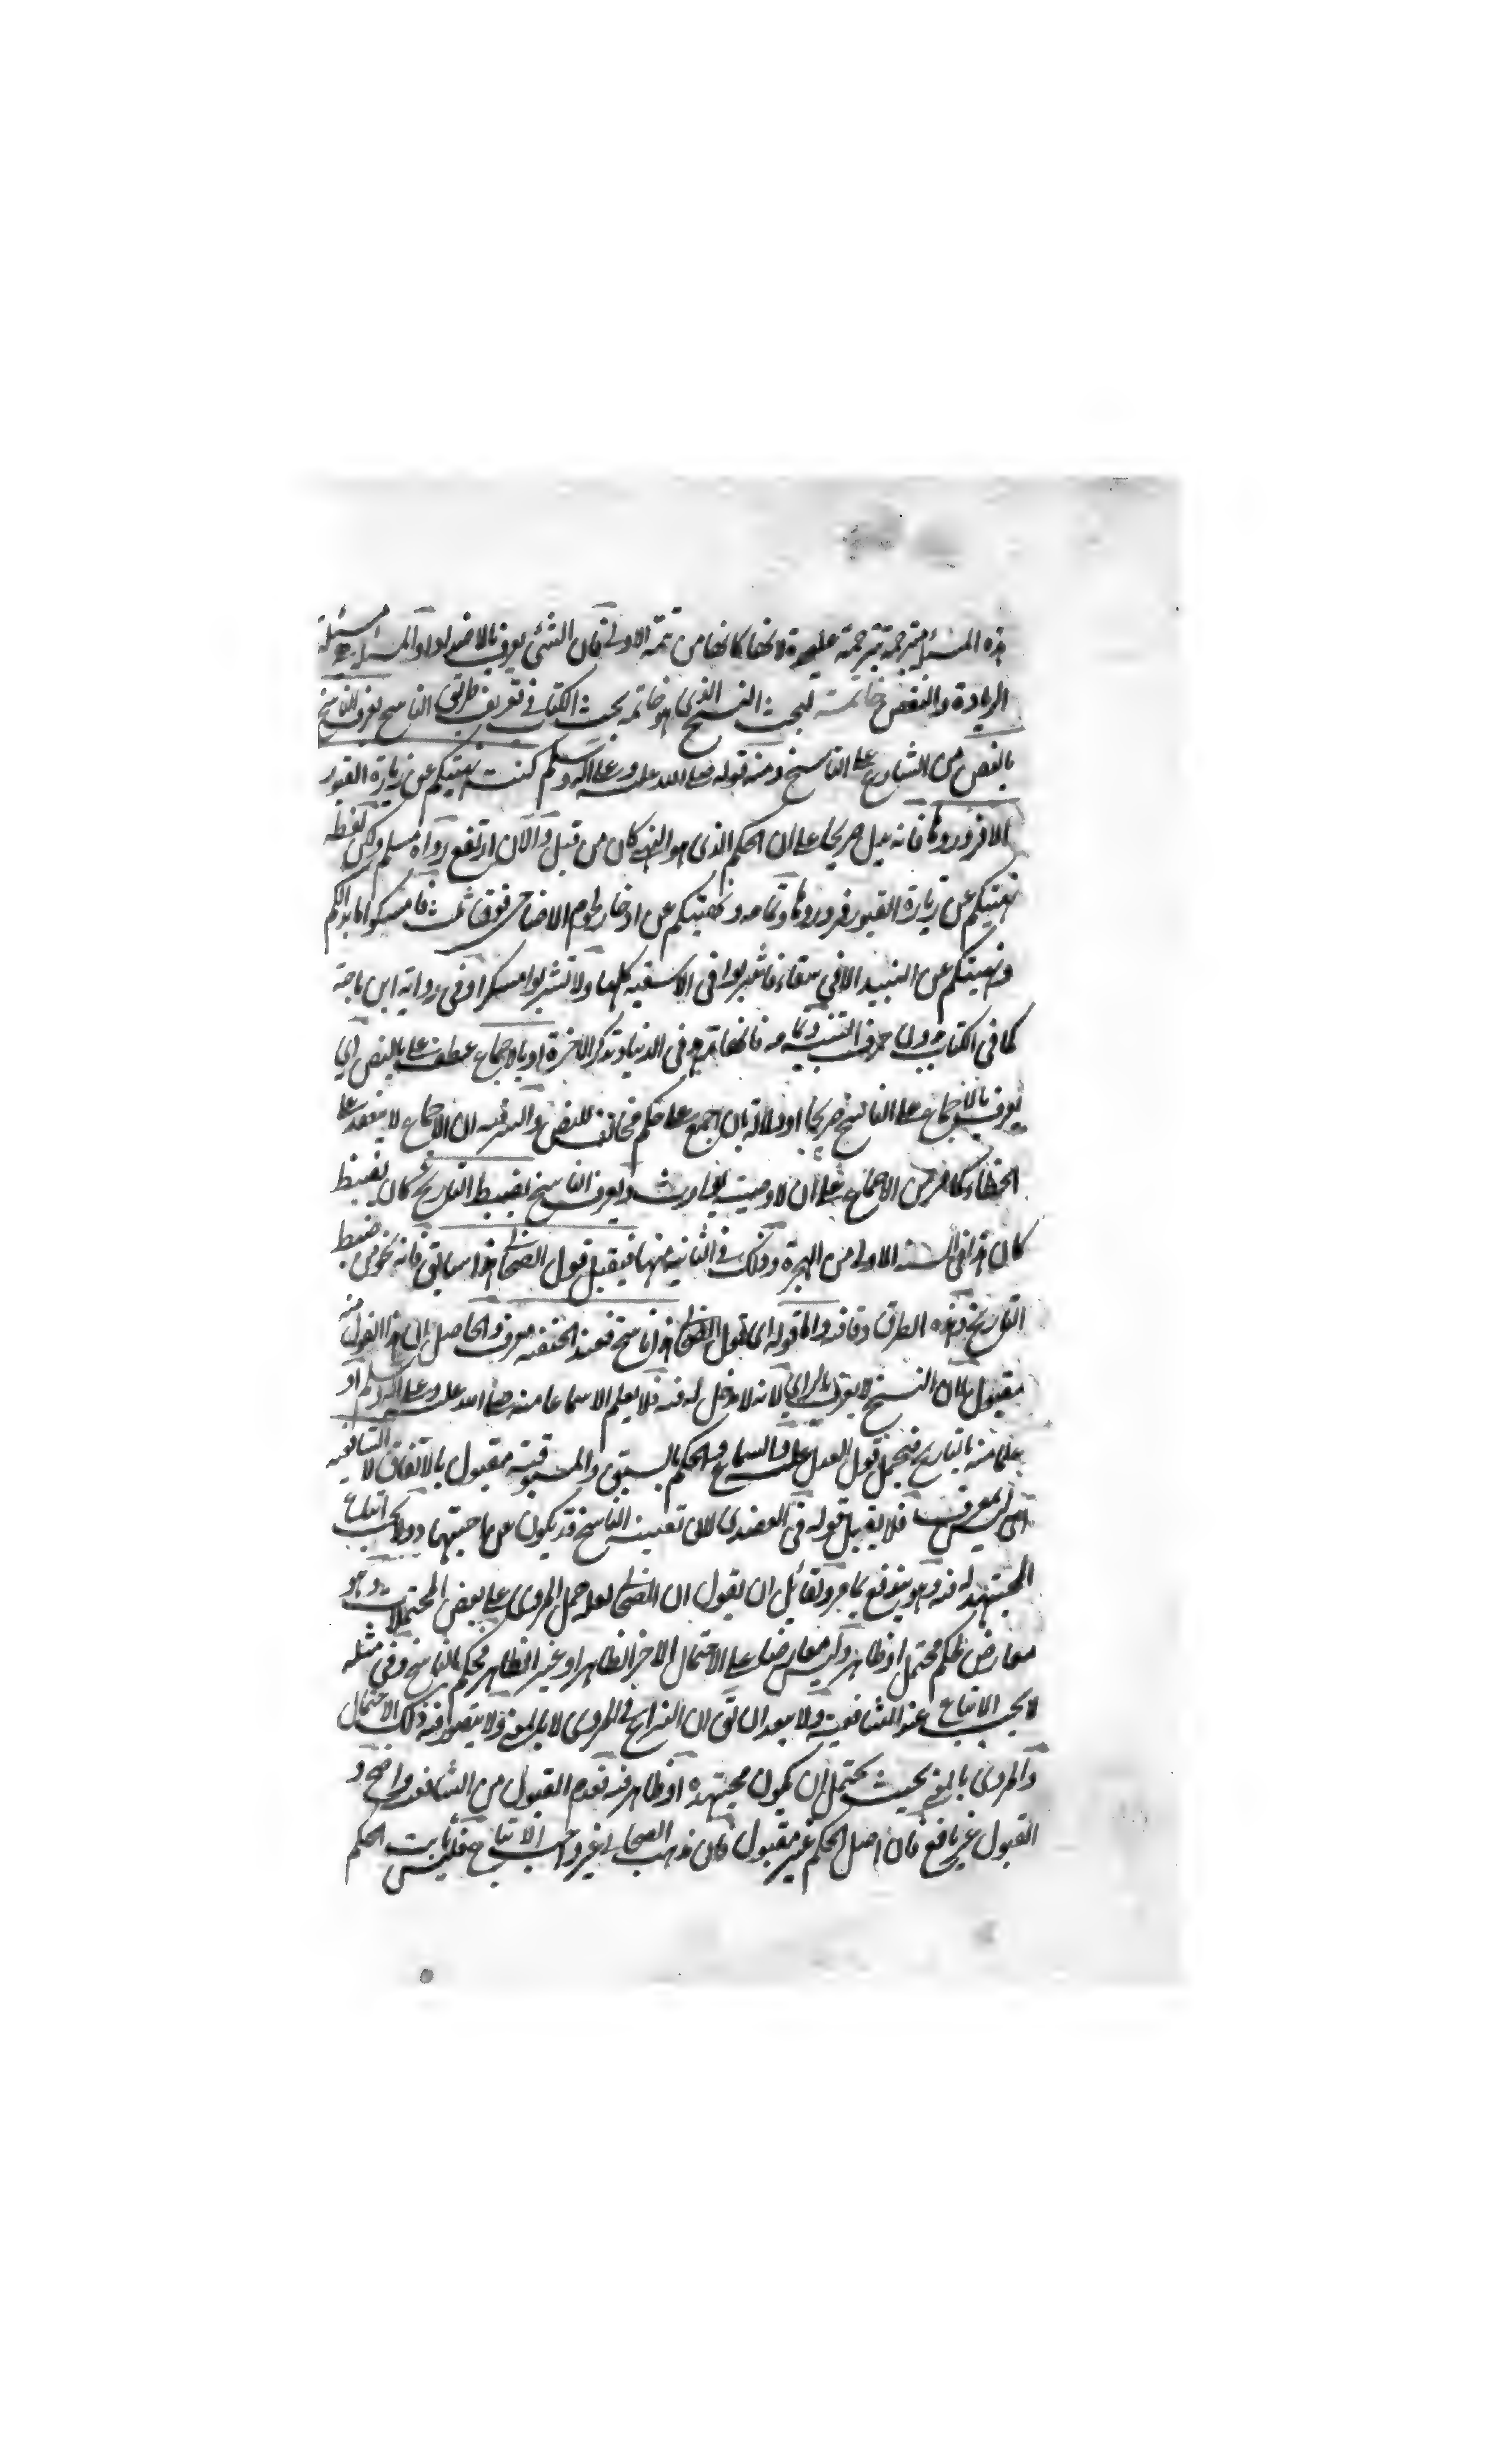 هذه المسئلة مترجمة بترجمة عليحدة لانها كانها من تتمة الاولى فان الشئ يعرف بالاضداد والمسئلة مسئلة
الزيادة والنقض خاتمة لبحث النسخ الذي هو خاتمه بحث الكتاب في تعريف طريق الناسخ يعرف الناسخ
بالنص من الشارع على الناسخ ومنه قوله صلى الله عليه وعلى اله وسلم كنت نهيتكم عن زيارة القبور
الا فزوروها فانه يدل صريحا على ان الحكم الذي هو النهي كان من قبل والآن ارتفع رواه مسلم ولكن لفظه
نهيتكم عن زيارة القبور فزوروها وتمامه ونهيتكم عن ادخار لحوم الاضاحي فوق ثلث فامسكوا ما بدا لكم
ونهيتكم عن النبيذ الا في سقاء فاشربوا في الاسقية كلها ولا تشربوا مسكرا وفي رواية ابن ماجة
كما في الكتاب دون حرف التنبيه وتمامه فانها تزهد في الدنيا وتذكر الاخرة او بالاجماع عطف على بالنص اي
يعرف بالاجماع على الناسخ صريحا او دلالة بان اجمع على حكم مخالف للنص والسر فيه ان الاجماع لا ينعقد على
الخطاء كما مر من الاجماع على ان لا وصية لوارث ويعرف الناسخ بضبط التاريخ كان يضبط
كان هذا في السنة الاولى من الهجرة وذلك في الثانية منها فيقبل قول الصحابي هذا سابق فانه نحو من ضبط
التاريخ وهذه الطرق وفاقية واما قوله اي قول الصحابي هذا ناسخ فعند الحنفية معرف والحاصل ان هذا القول منه
مقبول لان النسخ لا يعرف بالراي لانه لا مدخل له فيه فلا يعلم الا سماعا منه صلى الله عليه وعلى اله وسلم او
علما منه بالتاريخ فيحمل قول العدل عليه والسماع والحكم بالسبق والمسبوقية مقبول بالاتفاق لا الشافعية
اي ليس بمعرف فلا يقبل قوله في العضدي لان تعيينه الناسخ قد يكون عن اجتهاد ولا يجب اتباع
المجتهد له فيه وهو يندفع بما مر ولقائل ان يقول ان الصحابي لعله حمل المروي على بعض المحتملات وهو
معارض لحكم محتمل او ظاهر وليس معارضا على الاحتمال الاخر الظاهر او غير الظاهر فحكم بالناسخ وفي مثله
لا يجب الاتباع عند الشافعية ولا يبعد ان يق ان النزاع في المروي لا بالمعنى ولا يتصور فيه ذلك الاحتمال
والمروي بالمعنى بحيث يحتمل ان يكون مجتهده او ظاهر فيه فعدم القبول من الشافعي واضح و
القبول غير نافع فان اصل الحكم غير مقبول فان مذهب الصحابي غير واجب الاتباع فليس ثابت الحكم